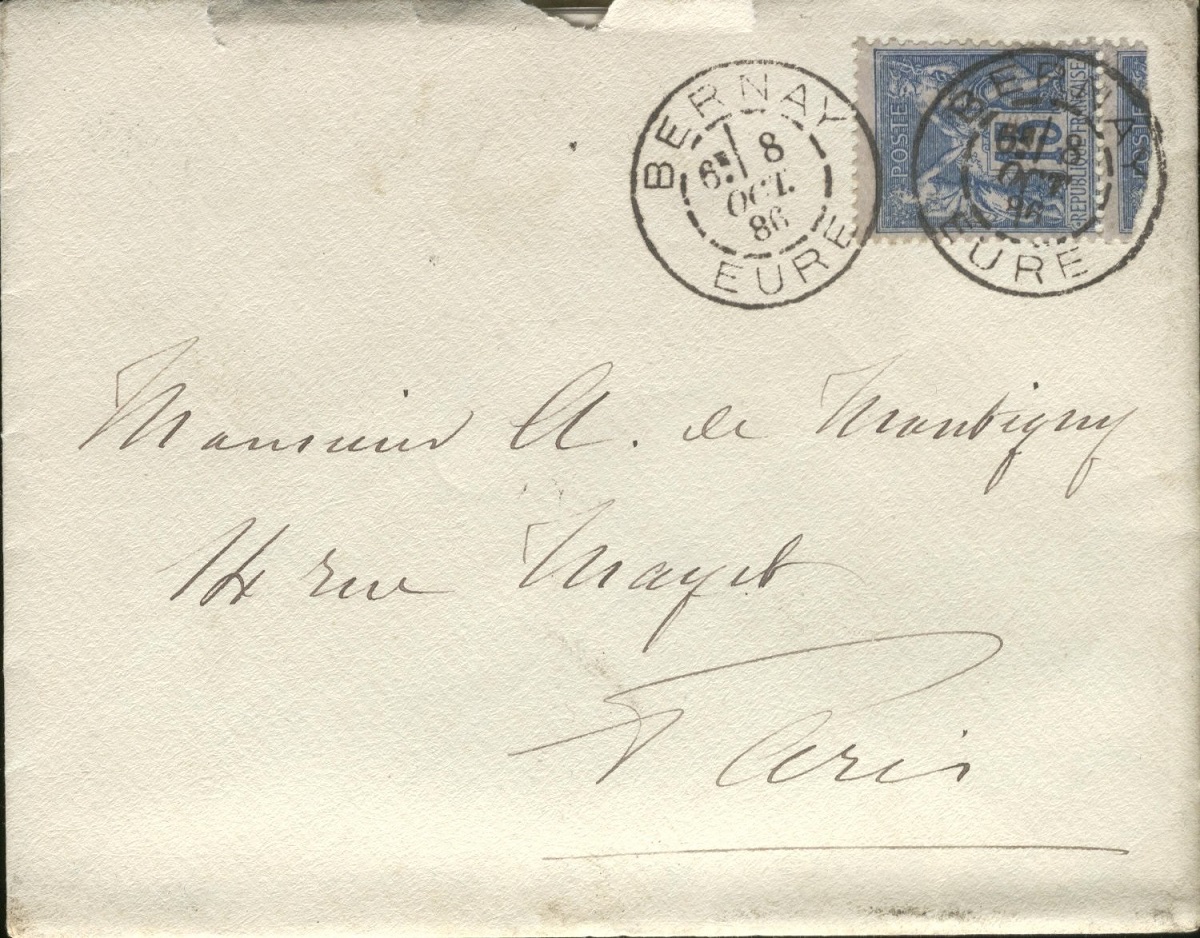 BERNAY
6E 8
OCT.
86
EURE
POSTE
15
REPUBLIQUE FRANÇAISE
POSTE
BERNAY
6E 8
OCT.
86
EURE
Monsieur A. de Montigny
14 rue Mayet
Paris